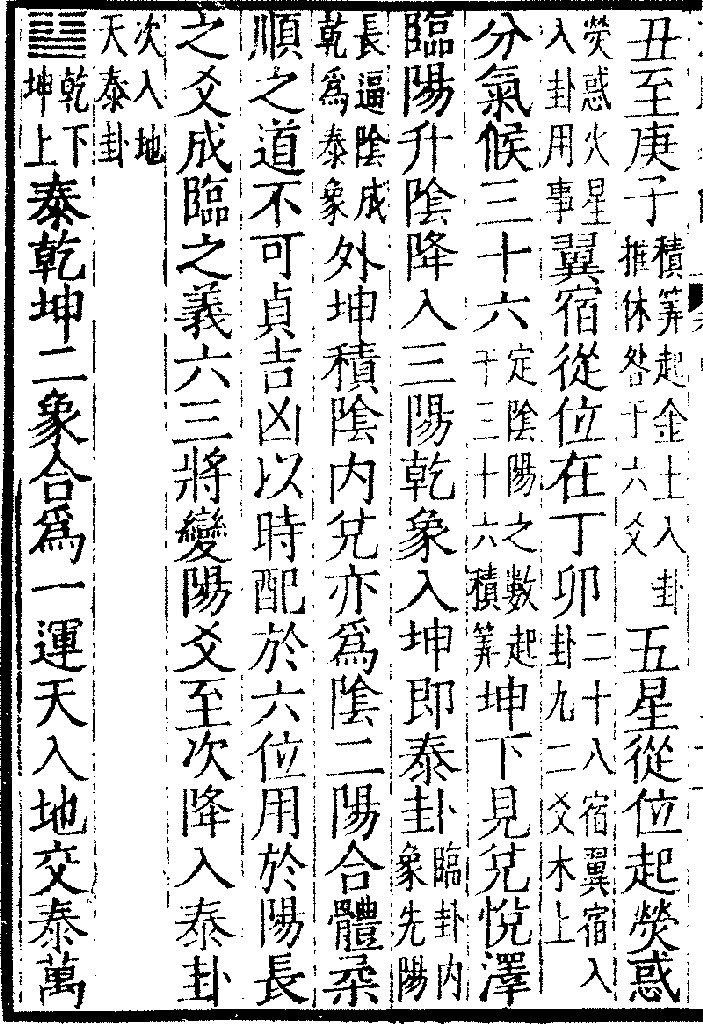 丑至庚子積筭起金土入卦推休咎于六爻五星從位起熒惑
熒惑火星入卦用事翼宿從位在丁卯二十八宿翼宿入卦九二爻木上
分氣候三十六定陰陽之數起于三十六積筭坤下見兌悅澤
臨陽升陰降入三陽乾象入坤即泰卦臨卦内象先陽
長逼陰成乾爲泰象外坤積陰内兌亦爲陰二陽合體柔
順之道不可貞吉凶以時配於六位用於陽長
之爻成臨之義六三將變陽爻至次降入泰卦
次入地天泰卦
䷊乾下坤上泰乾坤二象合爲一運天入地交泰萬